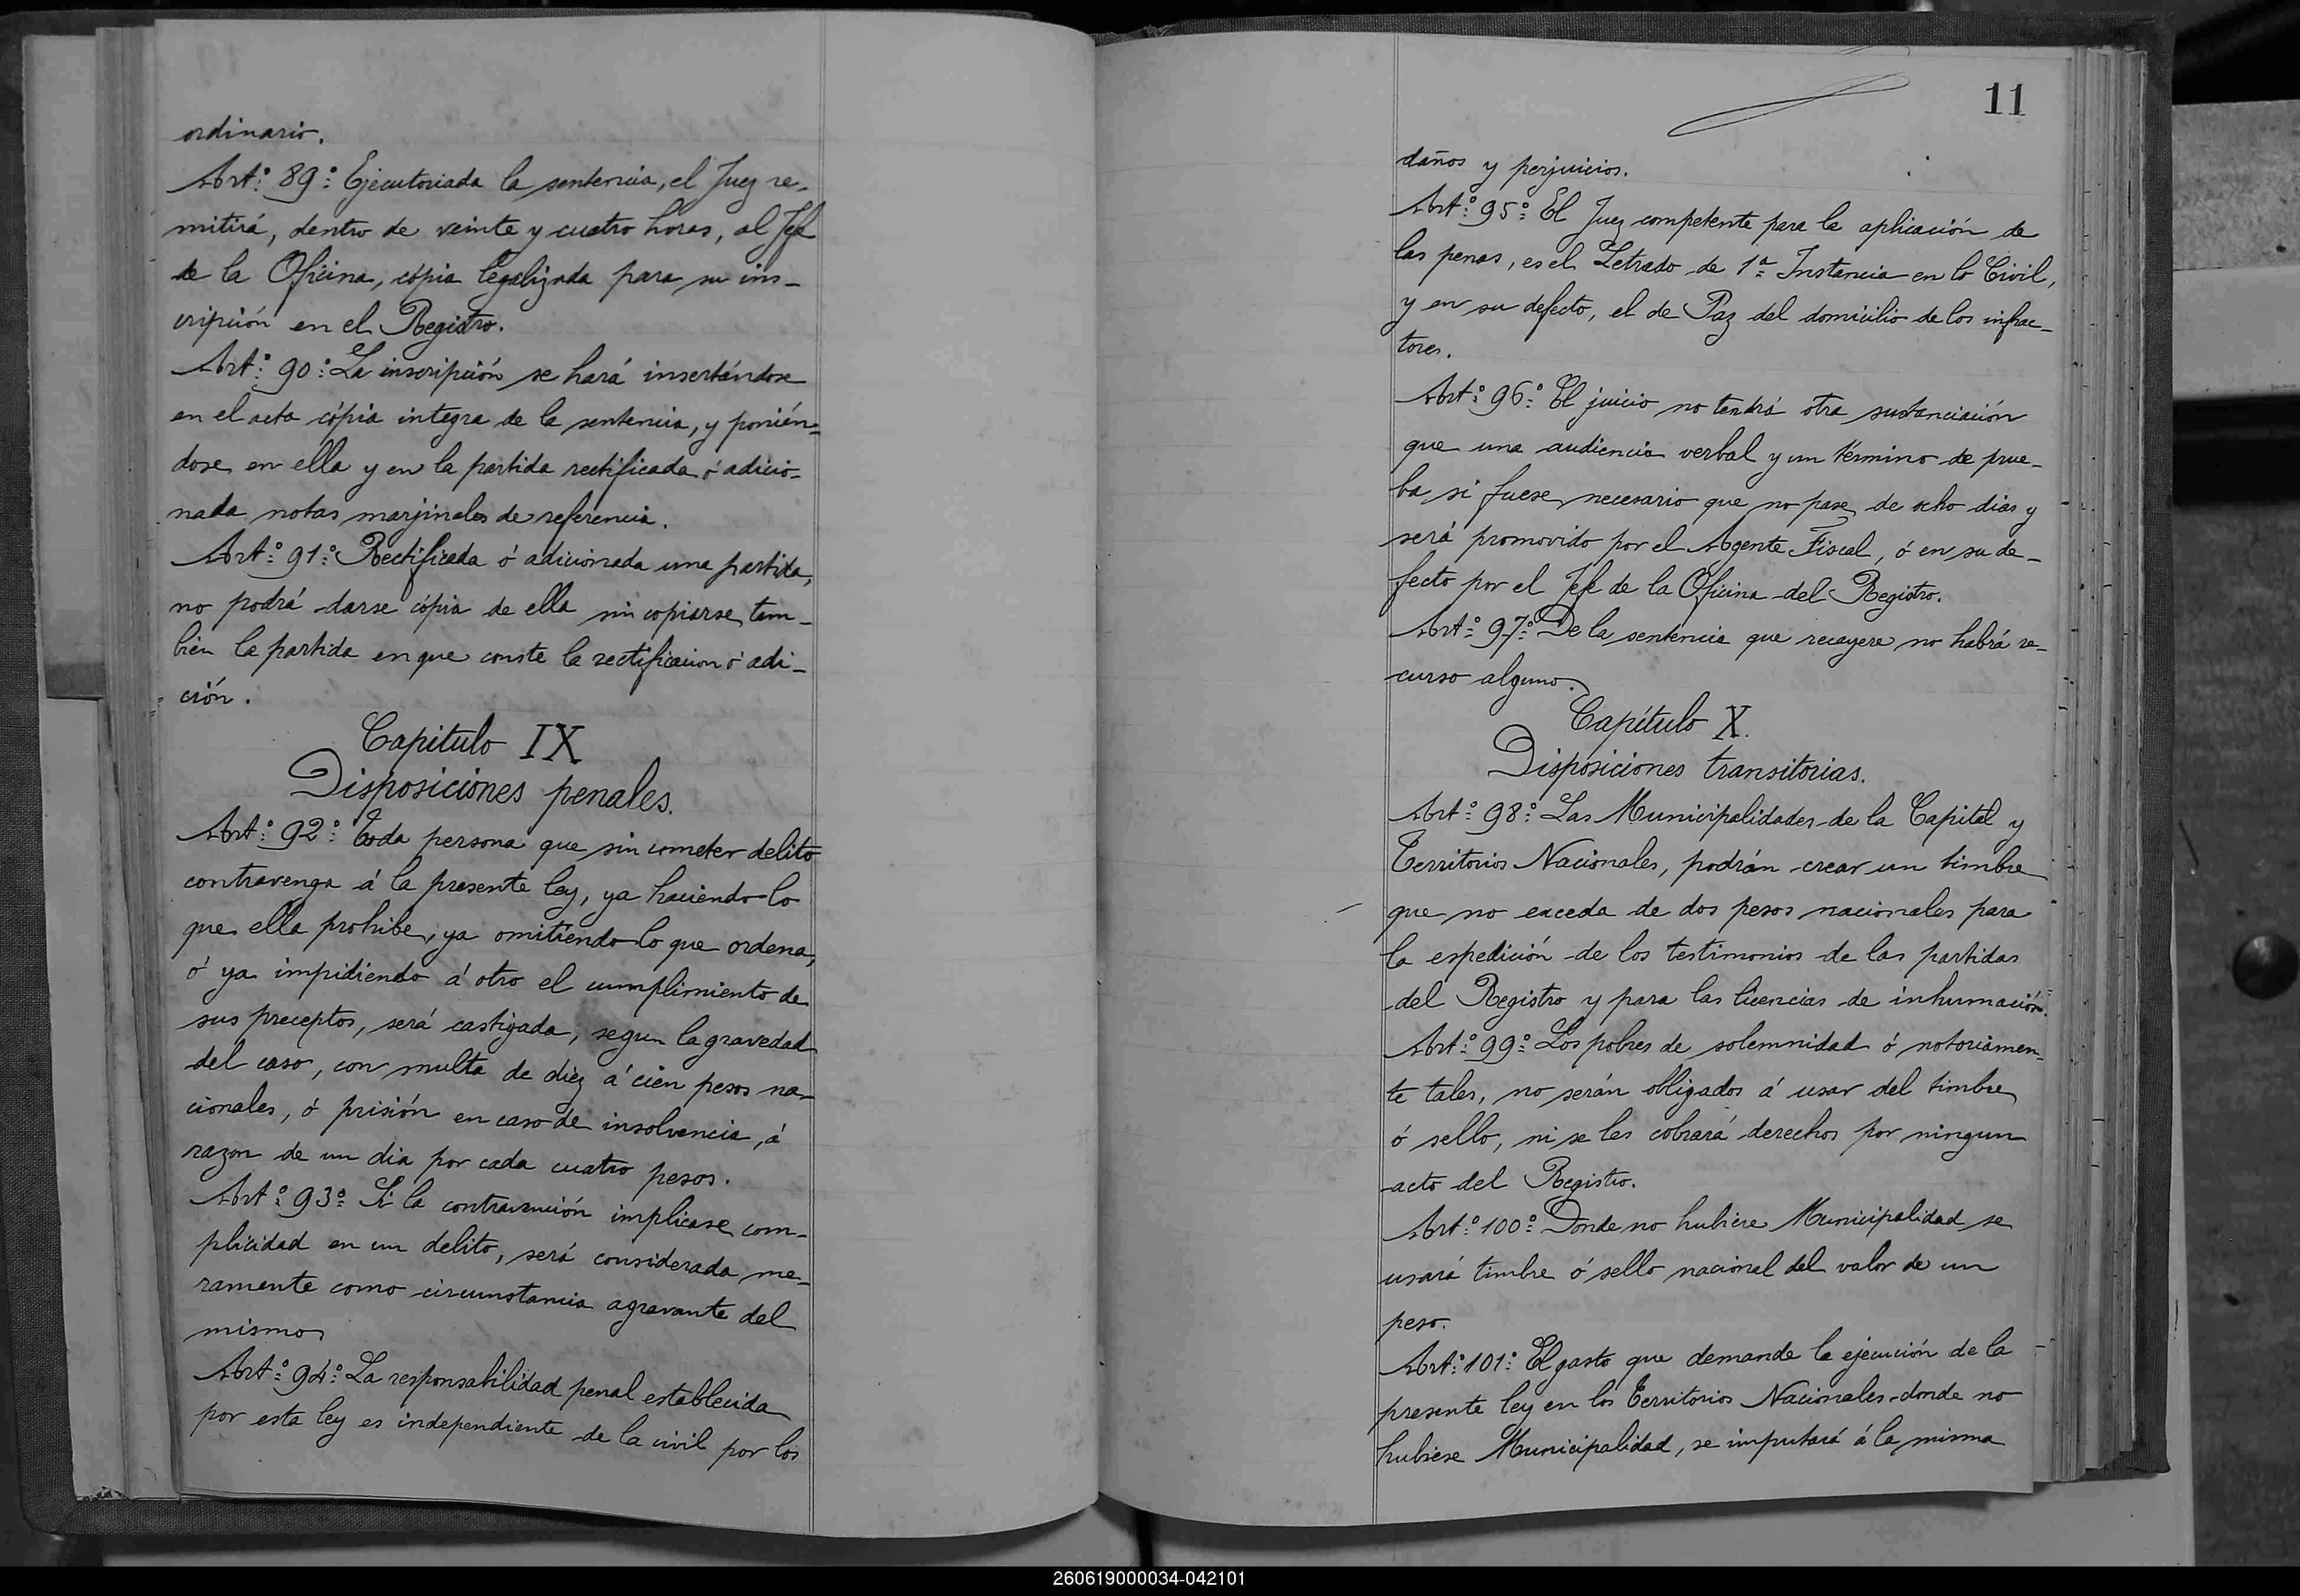 ordinario.
Art.º 89º Ejecutoriada la sentencia, el Juez re-
mitirá, dentro de veinte y cuatro horas, al Jefe
de la Oficina, cópia legalizada para su ins-
cripción en el Registro.
Art.º 90º La inscripción se hará insertándose
en el acta cópia integra de la sentencia, y ponién-
dose en ella y en la partida rectificada ó adicio-
nada notas marjinales de referencia.
Art.º 91º Rectificada ó adicionada una partida,
no podrá darse cópia de ella sin copiarse tam-
bien la partida en que conste la rectificacion ó adi-
ción.
Capitulo IX
Disposiciones penales.
Art.º 92º Toda persona que sin cometer delito
contravenga á la presente ley, ya haciendo lo
que ella prohibe, ya omitiendo lo que ordena,
ó ya impidiendo á otro el cumplimiento de
sus preceptos, será castigada, segun la gravedad
del caso, con multa de diez á cien pesos na-
cionales, ó prisión en caso de insolvencia, á
razon de un dia por cada cuatro pesos.
Art.º 93º Si la contravención implicase com-
plicidad en un delito, será considerada me-
ramente como circunstancia agravante del
mismo
Art.º 94º La responsabilidad penal establecida
por esta ley es independiente de la civil por los
11
daños y perjuicios.
Art.º 95º El Juez competente para la aplicación de
las penas, es el Letrado de 1ª Instancia en lo Civil,
y en su defecto, el de Paz del domicilio de los infrac-
tores.
Art.º 96º El juicio no tendrá otra sustanciación
que una audiencia verbal y un término de prue-
ba si fuese necesario que no pase de ocho dias y
será promovido por el Agente Fiscal, ó en su de-
fecto por el Jefe de la Oficina del Registro.
Art.º 97º De la sentencia que recayere no habrá re-
curso alguno.
Capítulo X.
Disposiciones transitorias.
Art.º 98º Las Municipalidades de la Capital y
Territorios Nacionales, podrán crear un timbre
que no exceda de dos pesos nacionales para
la espedición de los testimonios de las partidas
del Registro y para las licencias de inhumación.
Art.º 99º Los pobres de solemnidad ó notoriamen-
te tales, no serán obligados á usar del timbre
ó sello, ni se les cobrará derechos por ningun
acto del Registro.
Art.º 100º Donde no hubiere Municipalidad se
usará timbre ó sello nacional del valor de un
peso.
Art.º 101º El gasto que demande la ejecución de la
presente ley en los Territorios Nacionales donde no
hubiese Municipalidad, se imputará á la misma
260619000034-042101